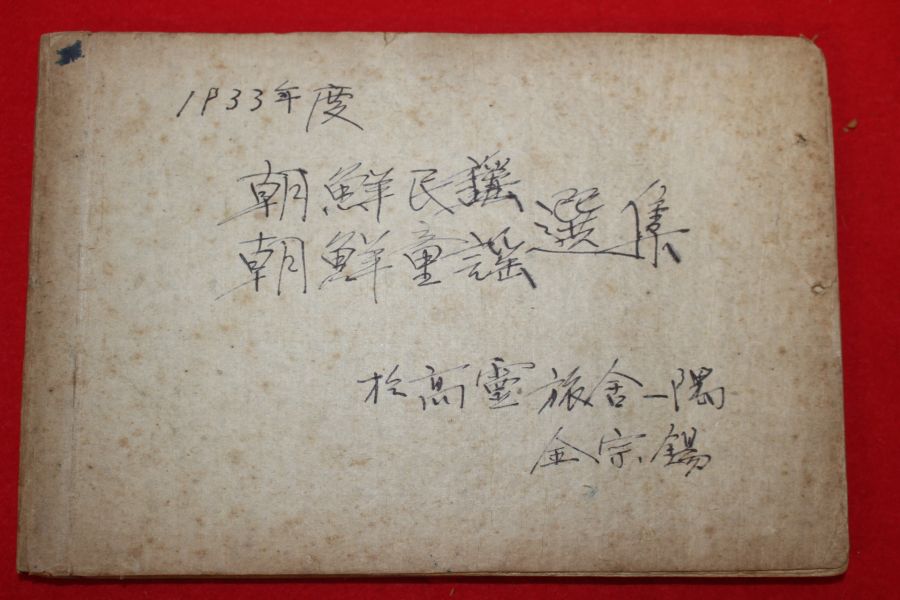 1933年度
朝鮮民謡
朝鮮童謡選集
於高靈旅舍一隅
金宗錫